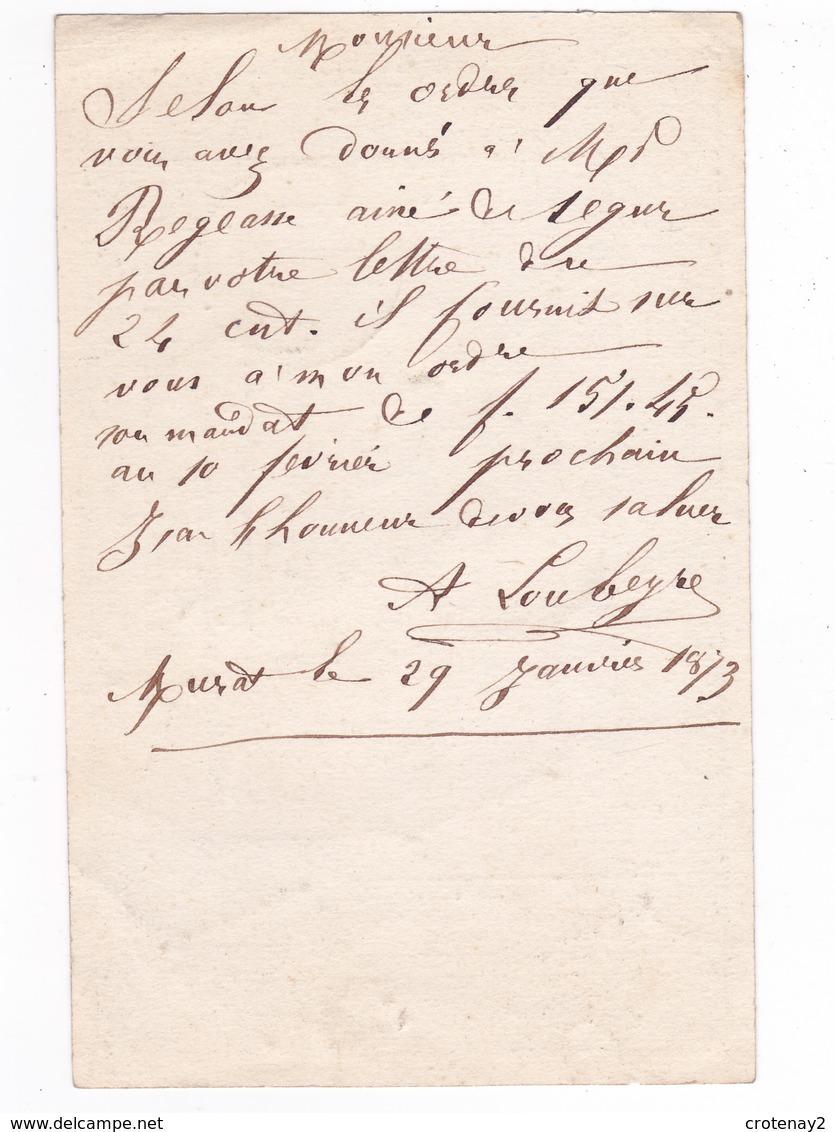 Monsieur
Selon les ordres que
vous avez donnés à Mr P
Regeasse ainé de Segur
par votre lettre du
24 cnt. il fournit sur
vous à mon ordre
son mandat de f. 151.45.
au 10 fevrier prochain
J'ai l'honneur de vous saluer
A Loubeyre
Murat le 29 Janvier 1873
delcampe.net
crotenay2